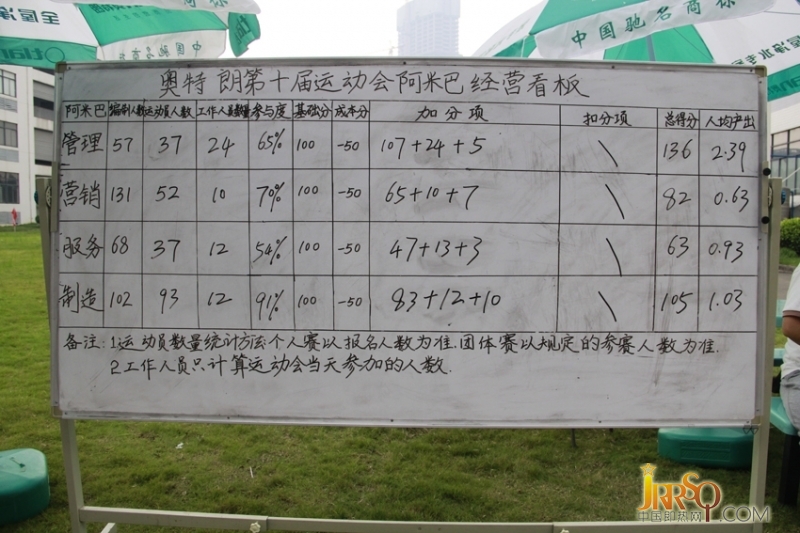 中国驰名商标
中国驰名商标
奥特朗第十届运动会阿米巴经营看板
阿米巴 编制人数 运动员人数 工作人员数量 参与度 基础分 成本分 加分项 扣分项 总得分 人均产出
管理 57 37 24 65% 100 -50 107+24+5 \ 136 2.39
营销 131 52 10 70% 100 -50 65+10+7 \ 82 0.63
服务 68 37 12 54% 100 -50 47+13+3 \ 63 0.93
制造 102 93 12 91% 100 -50 83+12+10 \ 105 1.03
备注:1.运动员数量统计方法:个人赛以报名人数为准.团体赛以规定的参赛人数为准.
2.工作人员只计算运动会当天参加的人数.
JRRSQ.COM
中国即热网